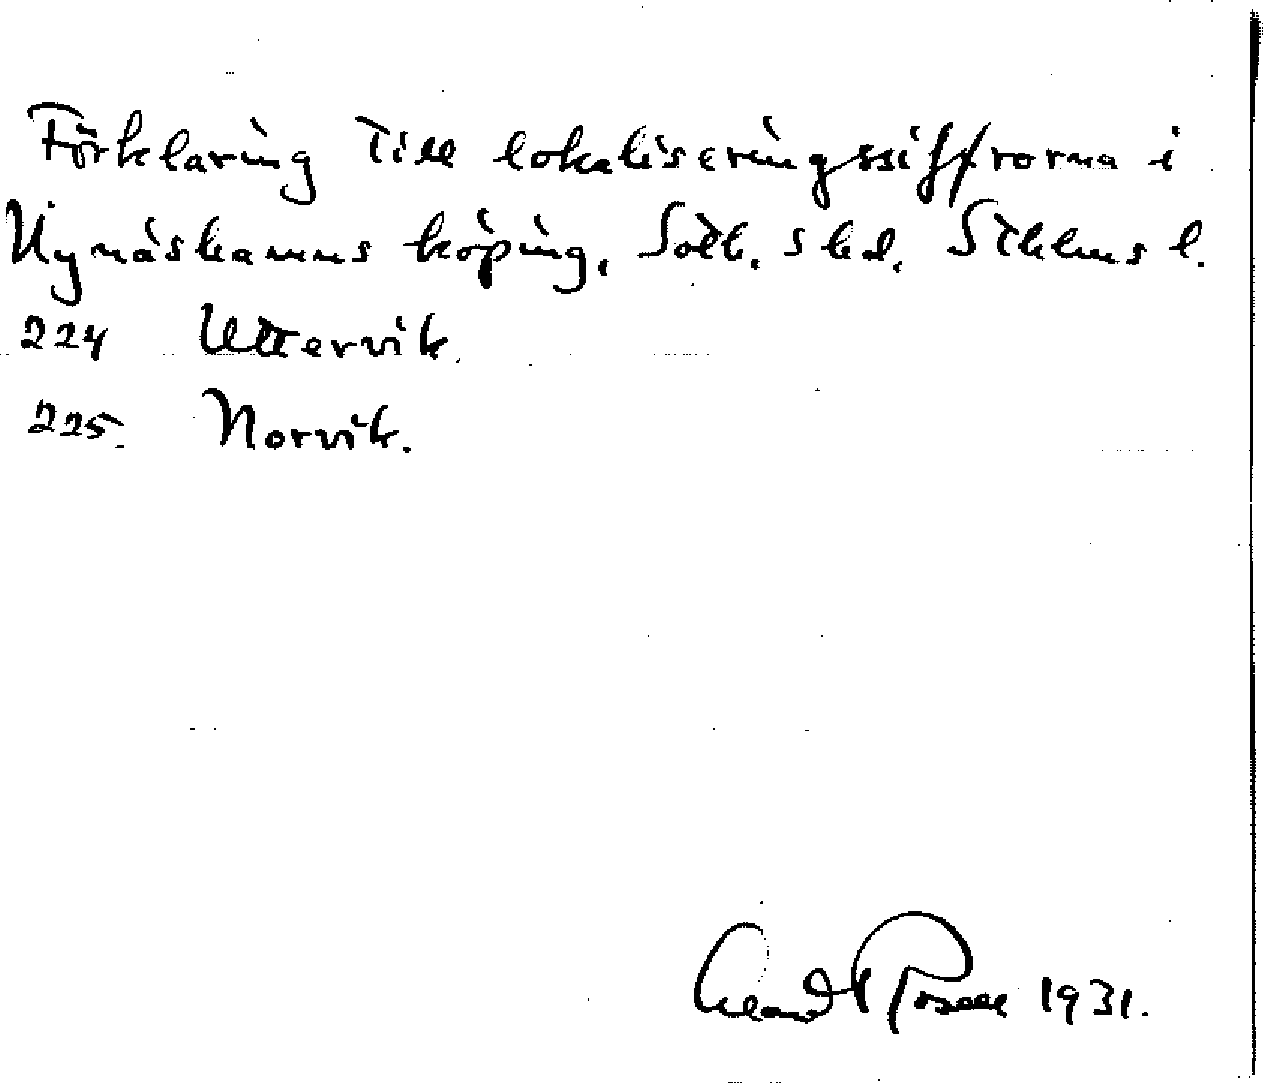 Förklaring till lokaliseringssiffrorna i
Nynäshamns köping, Sotb. skd, Sthlms l.
224 Uttervik.
225. Norvik.
Rosell 1931.